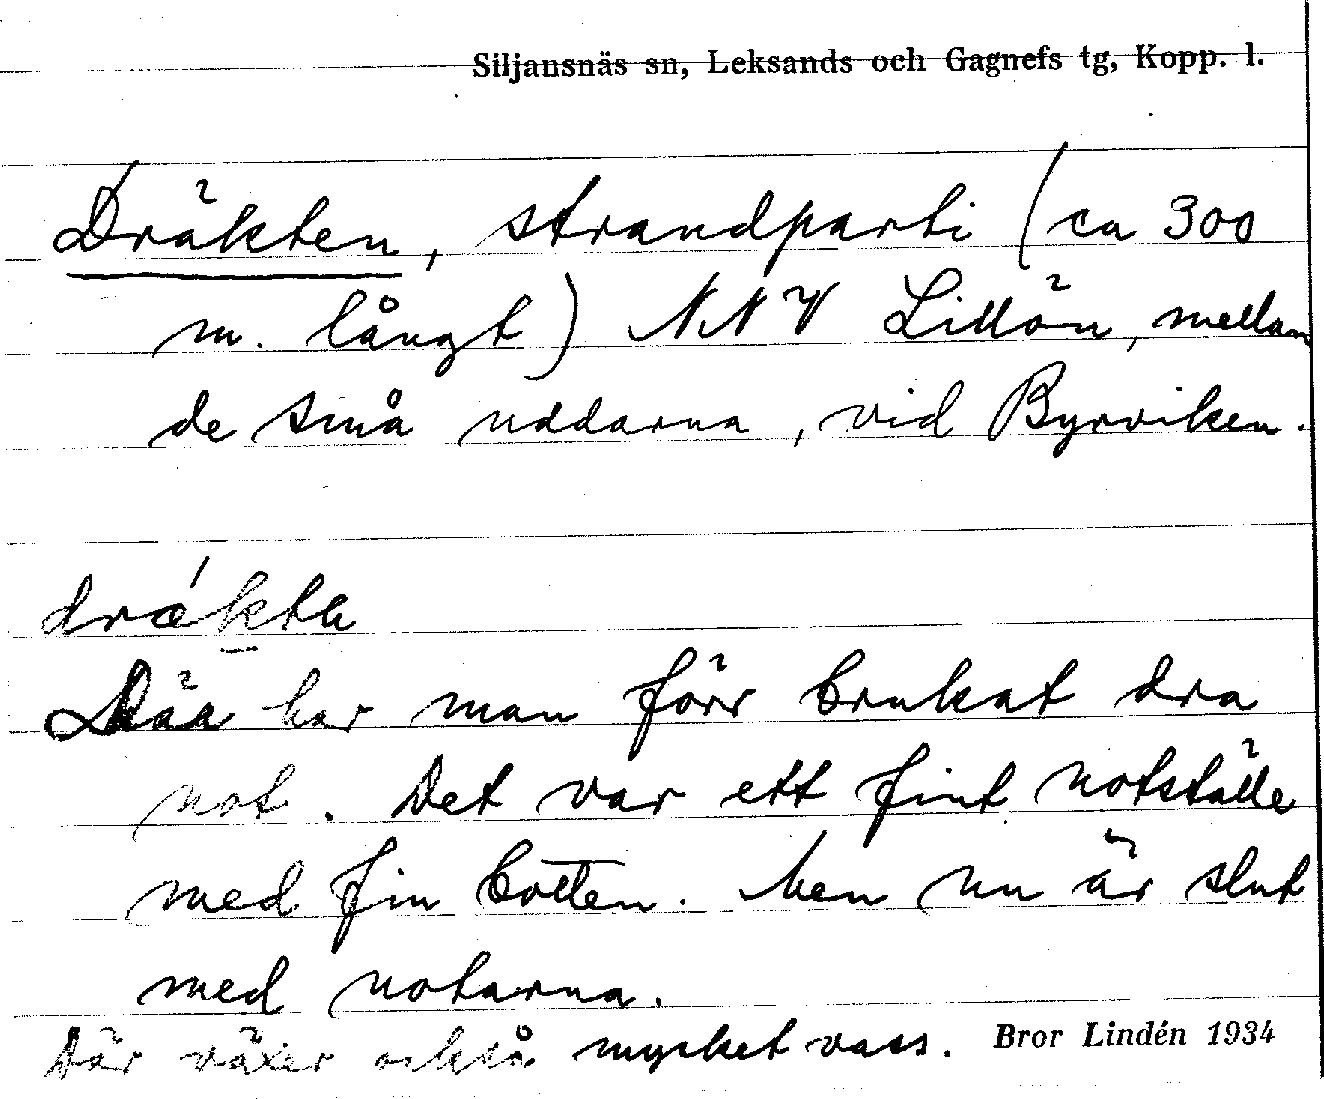 Siljansnäs sn, Leksands och Gagnefs tg, Kopp. l.
Dräkten, strandparti (ca 300
m. långt) NNV Lillön, mellan
de små uddarna, vid Byrviken.
drǽktn
Där har man förr brukat dra
not. Det var ett fint notställe
med fin botten. Men nu är slut
med notarna.
Där växer också mycket vass. Bror Lindén 1934